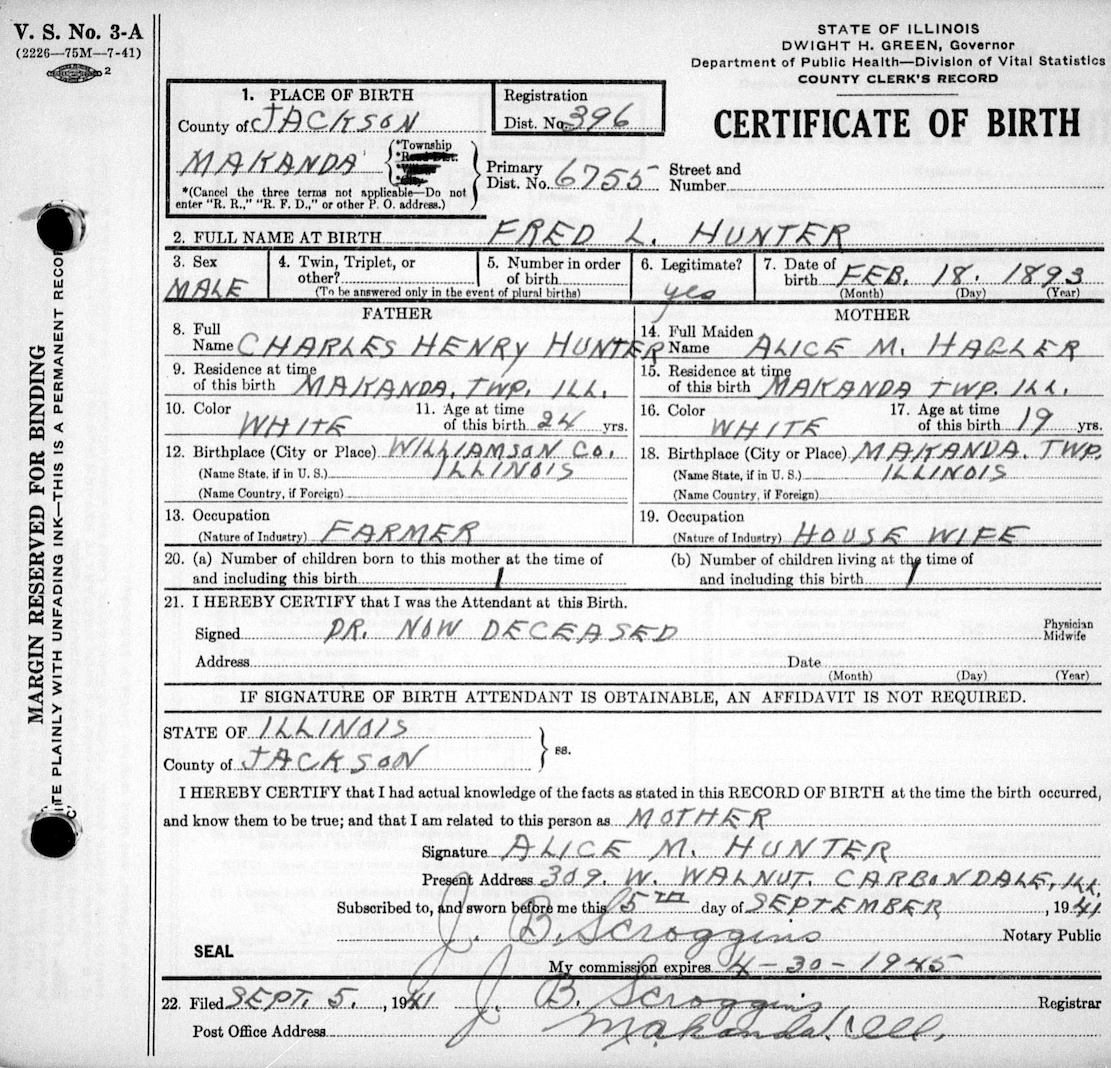 V. S. No. 3-A
(2226—75M—7-41)
2
STATE OF ILLINOIS
DWIGHT H. GREEN, Governor
Department of Public Health—Division of Vital Statistics
COUNTY CLERK'S RECORD
CERTIFICATE OF BIRTH
1. PLACE OF BIRTH
County of JACKSON
Registration
Dist. No. 396
MAKANDA
*Township
*(Cancel the three terms not applicable—Do not
enter "R. R.," "R. F. D.," or other P. O. address.)
Primary
Dist. No. 6755
Street and
Number
2. FULL NAME AT BIRTH FRED L. HUNTER
3. Sex
MALE
4. Twin, Triplet, or
other?
5. Number in order
of birth
(To be answered only in the event of plural births)
6. Legitimate?
yes
7. Date of
birth FEB. 18. 1893
(Month) (Day) (Year)
FATHER
8. Full
Name CHARLES HENRY HUNTER
9. Residence at time
of this birth MAKANDA. TWP. ILL.
10. Color
WHITE
11. Age at time
of this birth 24 yrs.
12. Birthplace (City or Place) WILLIAMSON CO.
(Name State, if in U. S.) ILLINOIS
(Name Country, if Foreign)
13. Occupation
(Nature of Industry) FARMER
MOTHER
14. Full Maiden
Name ALICE M. HAGLER
15. Residence at time
of this birth MAKANDA TWP. ILL.
16. Color
WHITE
17. Age at time
of this birth 19 yrs.
18. Birthplace (City or Place) MAKANDA. TWP.
(Name State, if in U. S.) ILLINOIS
(Name Country, if Foreign)
19. Occupation
(Nature of Industry) HOUSE WIFE
20. (a) Number of children born to this mother at the time of
and including this birth 1
(b) Number of children living at the time of
and including this birth 1
21. I HEREBY CERTIFY that I was the Attendant at this Birth.
Signed DR. NOW DECEASED
Physician
Midwife
Address Date
(Month) (Day) (Year)
IF SIGNATURE OF BIRTH ATTENDANT IS OBTAINABLE, AN AFFIDAVIT IS NOT REQUIRED.
STATE OF ILLINOIS
County of JACKSON } ss.
I HEREBY CERTIFY that I had actual knowledge of the facts as stated in this RECORD OF BIRTH at the time the birth occurred,
and know them to be true; and that I am related to this person as MOTHER
Signature ALICE M. HUNTER
Present Address 309. W. WALNUT. CARBONDALE, ILL.
Subscribed to, and sworn before me this 5TH day of SEPTEMBER, 1941
J. B. Scroggins Notary Public
SEAL
My commission expires 4-30-1945
22. Filed SEPT. 5., 1941 J. B. Scroggins Registrar
Post Office Address Makanda. Ill.
MARGIN RESERVED FOR BINDING
ITE PLAINLY WITH UNFADING INK—THIS IS A PERMANENT RECOR